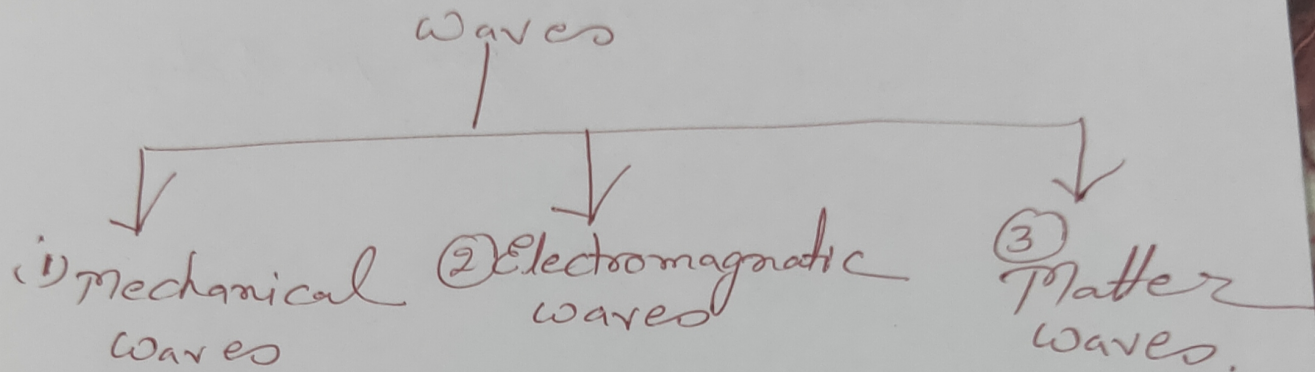 Waves
(1) Mechanical
waves
② Electromagnatic
waves
③
Matter
waves.